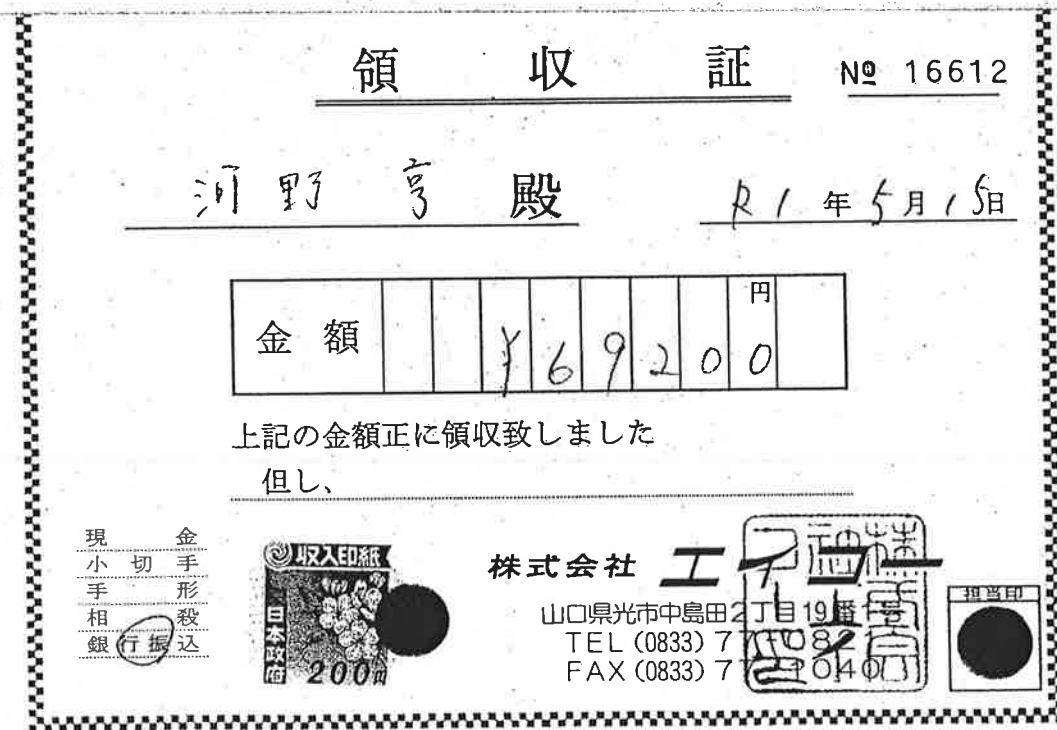 領収証 № 16612
河野 亨 殿 R1年5月15日
金額 ¥69200円
上記の金額正に領収致しました
但し、
現金
小切手
手形
相殺
銀行振込
収入印紙
日本政府
200円
株式会社 エイコー
山口県光市中島田2丁目19番1号
TEL (0833) 77-082
FAX (0833) 77-2040
担当印